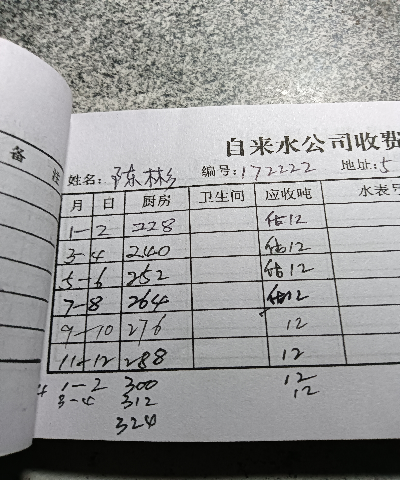 备注
自来水公司收费
姓名:陈彬 编号:172222 地址:5
月 日 厨房 卫生间 应收吨 水表号
1-2 228 估12
3-4 240 估12
5-6 252 估12
7-8 264 估12
9-10 276 12
11-12 288 12
1-2 300 12
3-4 312 12
324